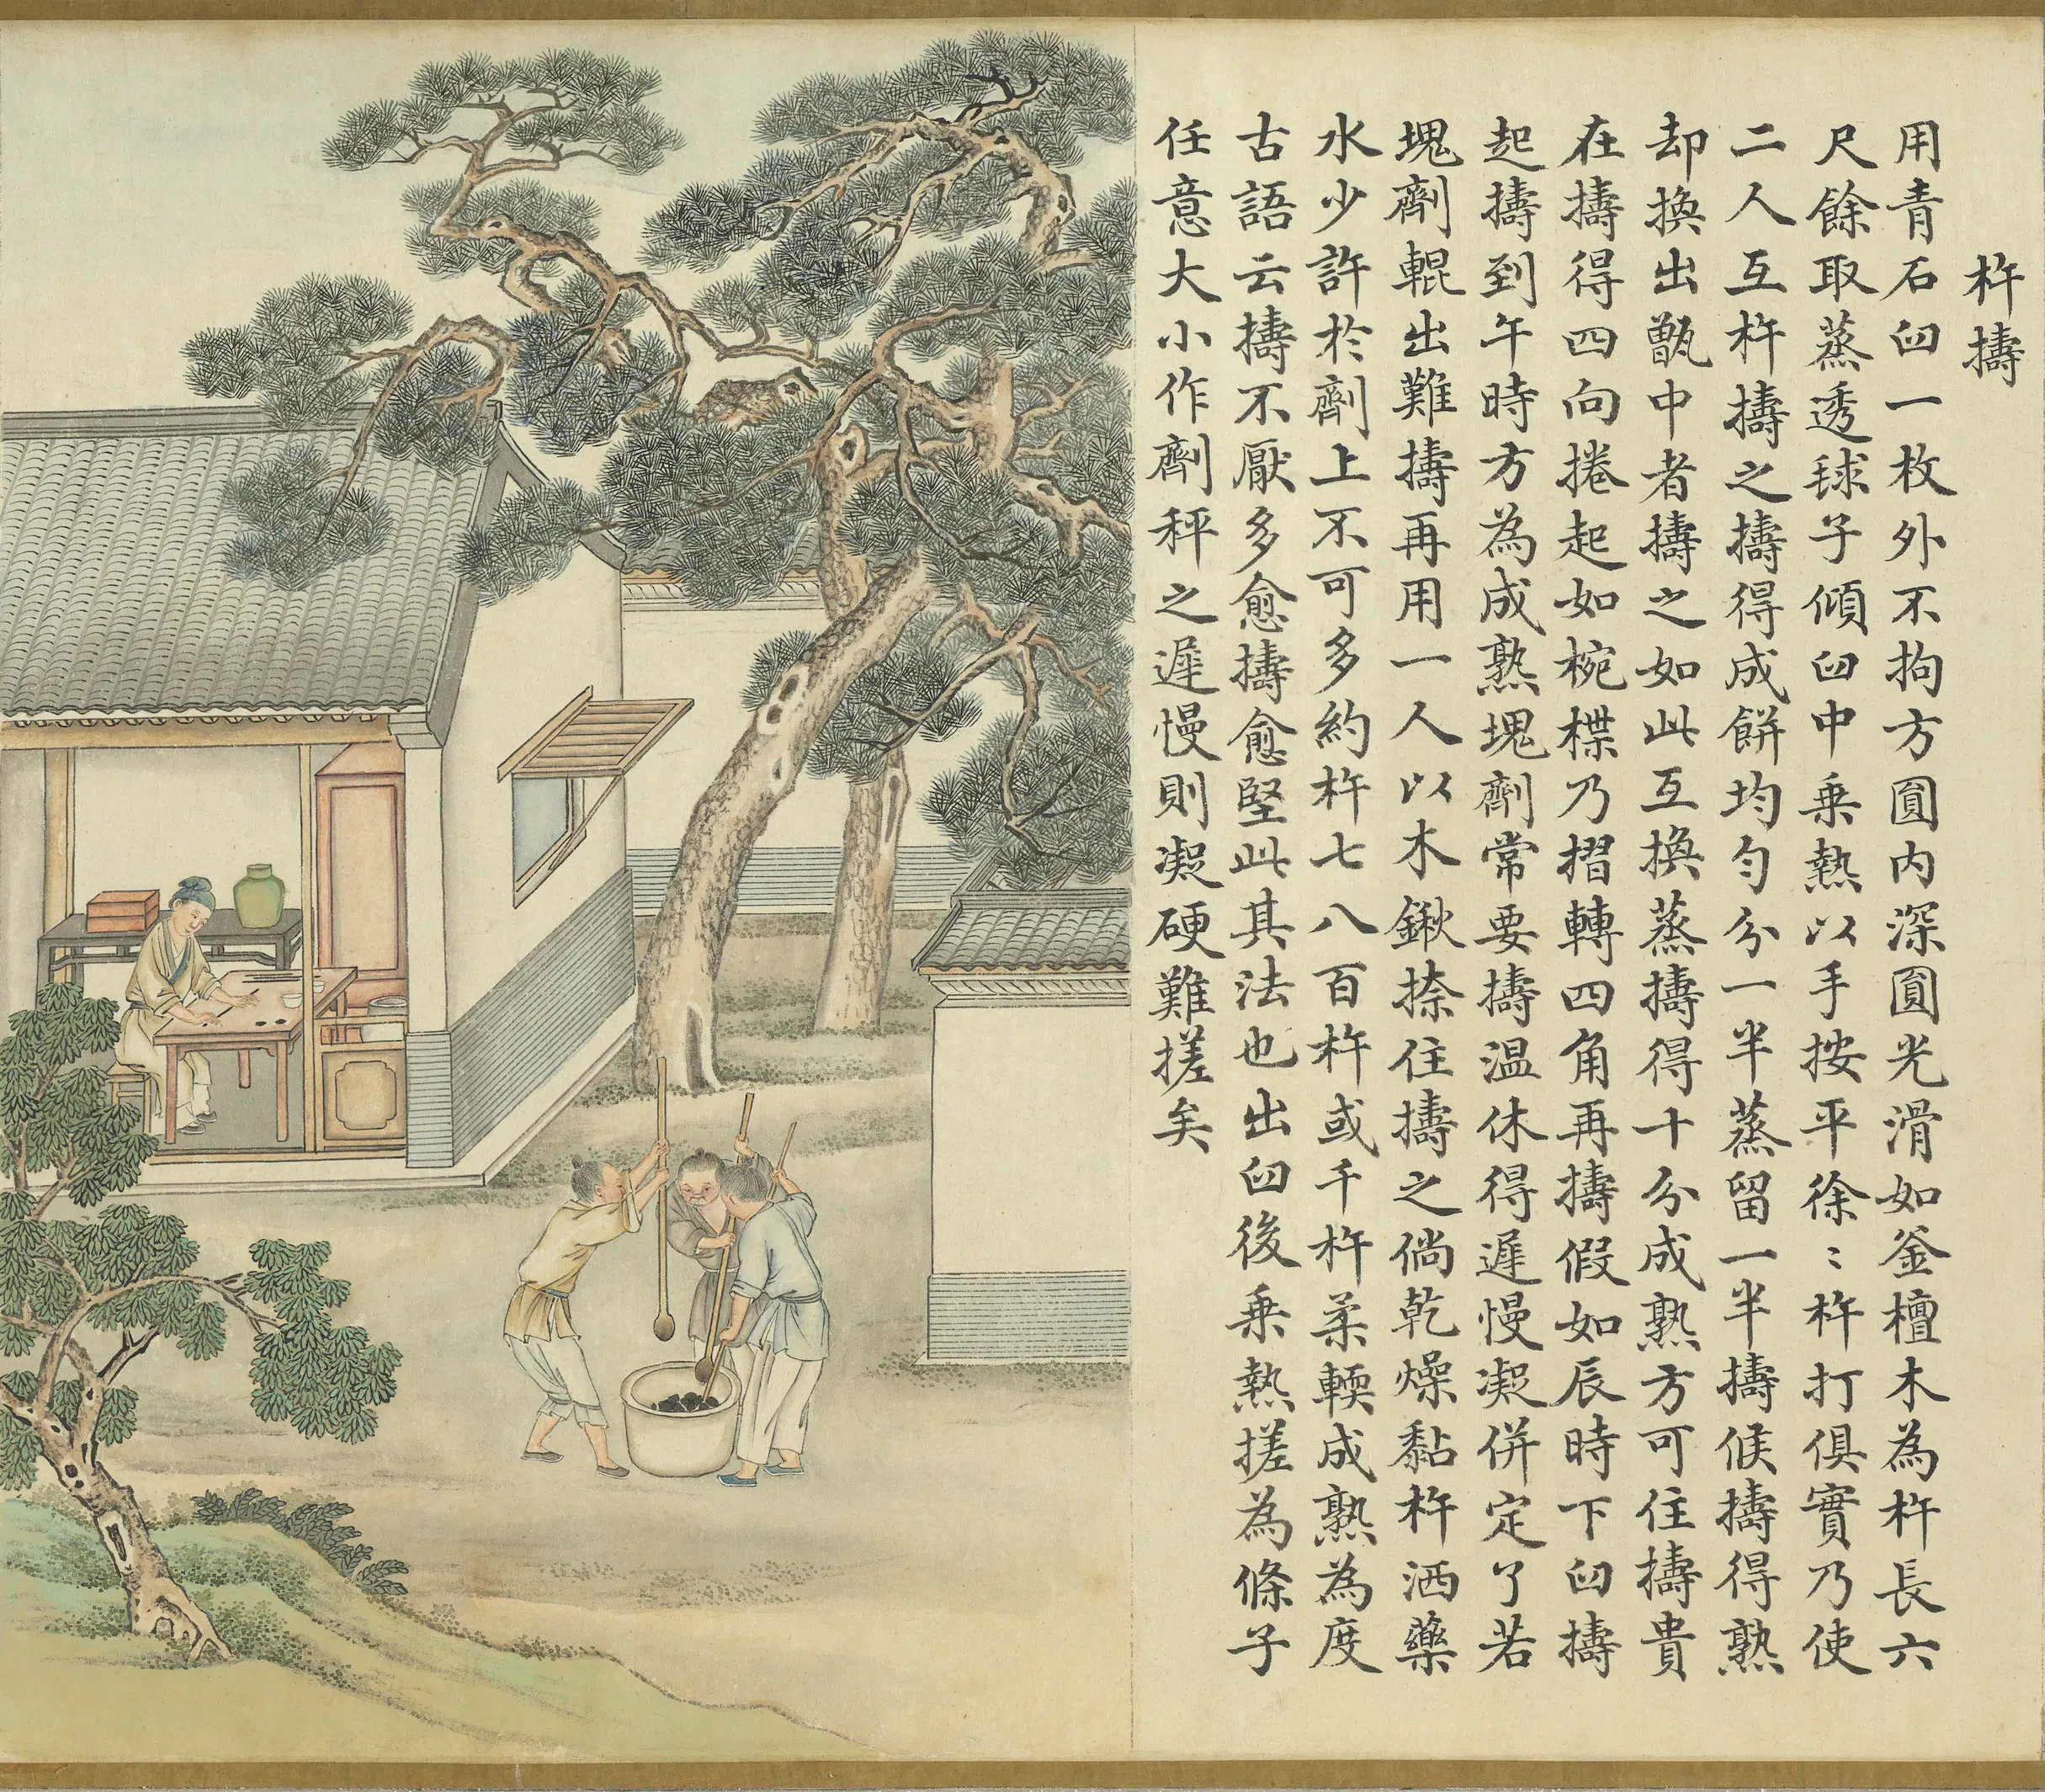 杵擣
用青石臼一枚外不拘方圓内深圓光滑如釜檀木為杵長六
尺餘取蒸透毬子傾臼中乗熱以手按平徐〻杵打俱實乃使
二人互杵擣之擣得成餅均勻分一半蒸留一半擣候擣得熟
却換出甑中者擣之如此互換蒸擣得十分成熟方可住擣貴
在擣得四向捲起如椀楪乃摺轉四角再擣假如辰時下臼擣
起擣到午時方為成熟塊劑常要擣温休得遲慢凝併定了若
塊劑輥出難擣再用一人以木鍬捺住擣之倘乾燥黏杵洒藥
水少許於劑上不可多約杵七八百杵或千杵柔輭成熟為度
古語云擣不厭多愈擣愈堅此其法也出臼後乗熱搓為條子
任意大小作劑秤之遲慢則凝硬難搓矣